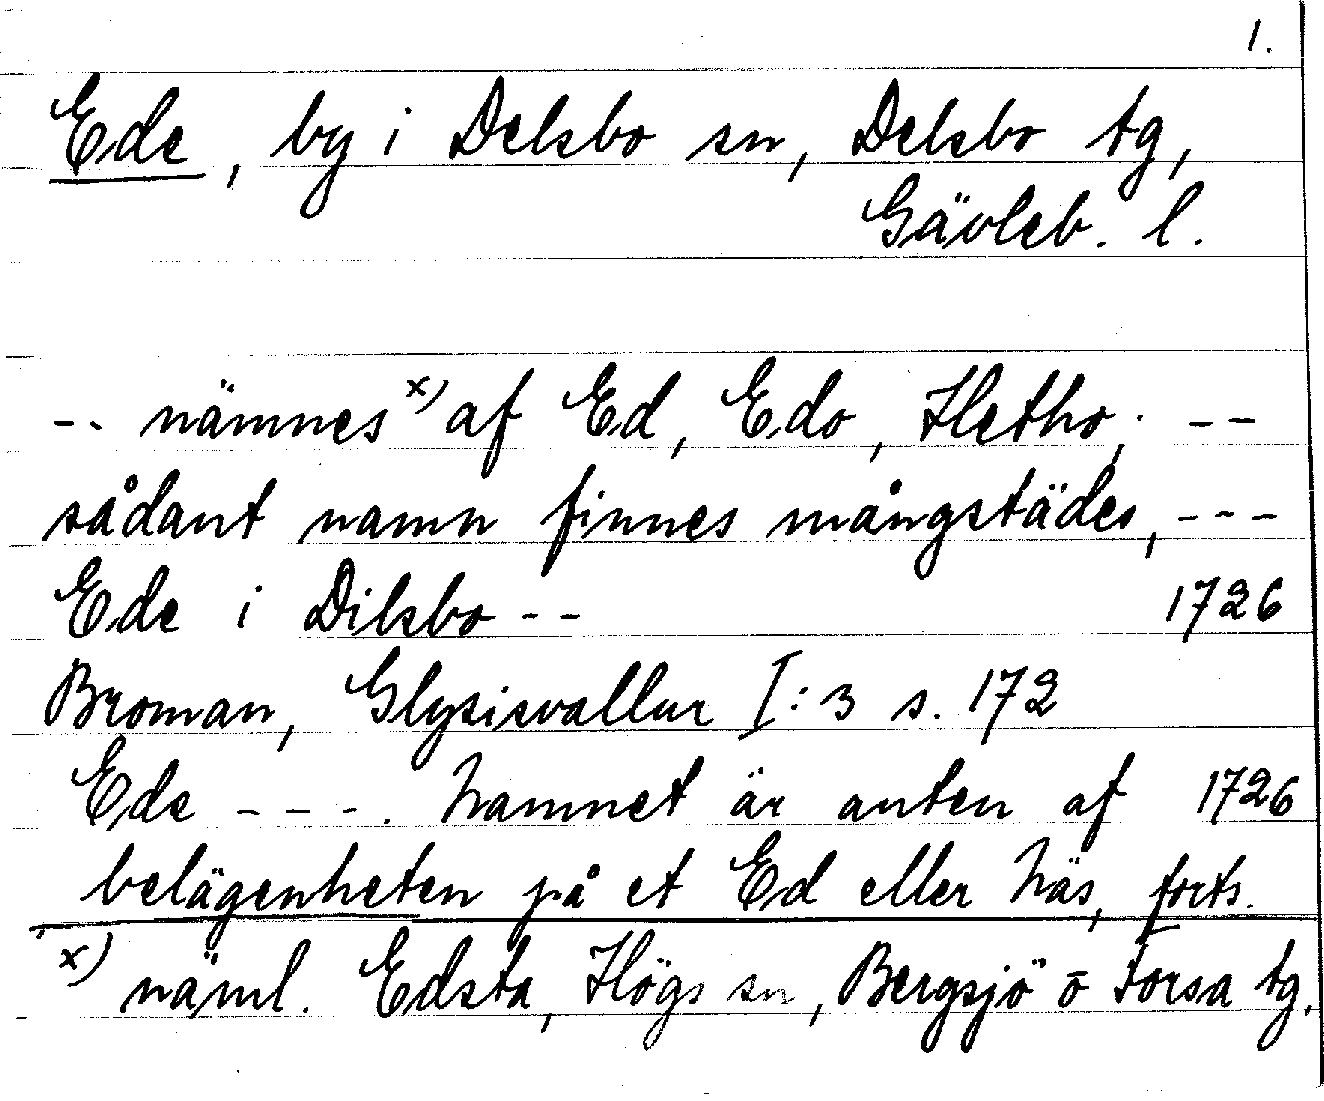 1.
Ede, by i Delsbo sn, Delsbo tg,
Gävleb. l.
-- nämnes x) af Ed, Edo, Hetho; --
sådant namn finnes mångstädes, ---
Ede i Dilsbo -- 1726
Broman, Glysisvallur I:3 s. 172
Ede ---. Namnet är anten af 1726
belägenheten på et Ed eller Näs, forts.
x) näml. Edsta, Högs sn, Bergsjö o Forsa tg.